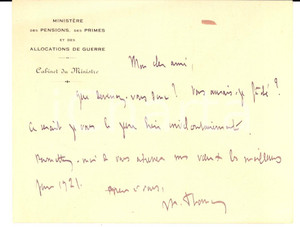 MINISTÈRE
DES PENSIONS, DES PRIMES
ET DES
ALLOCATIONS DE GUERRE
Cabinet du Ministre
Mon cher ami,
Que devenez-vous donc ? Vous aurais-je fâché ?
Ce serait je vous le jure bien involontairement.
Permettez-moi de vous adresser mes vœux les meilleurs
pour 1921.